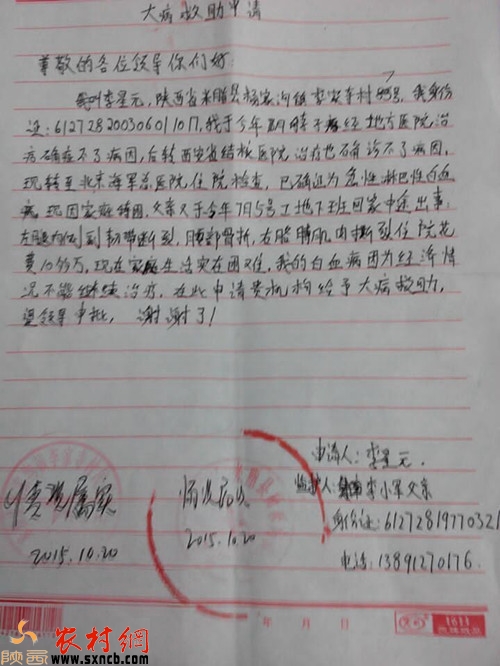 大病救助申请
尊敬的各位领导你们好:
我叫李星元,陕西省米脂县杨家沟镇李家寺村 号,我身份
证:612728200306011017,我于今年 月 不 经地方医院治
病确症不了病因,后转西安省结核医院治疗也确诊不了病因,
现转至北京海军总医院住院检查,已确证为急性淋巴性白血
病,现因家庭 因,父亲又于今年7月5号工地下班回家中途出事:
左腿 韧带断裂,腰部骨折,右胳膊肌肉撕裂住院花
费10多万,现在家庭生活实在困难,我的白血病因为经济情
况不能继续治疗,在此申请贵机构给予大病救助,
望领导审批,谢谢了!
申请人:李星元.
监护人: 李小军父亲
情况属实
2015.10.20
2015.10.20
身份证:61272819770321
电话:13891270176.
年 月 日
1611
陕西农村网
www.sxncb.com